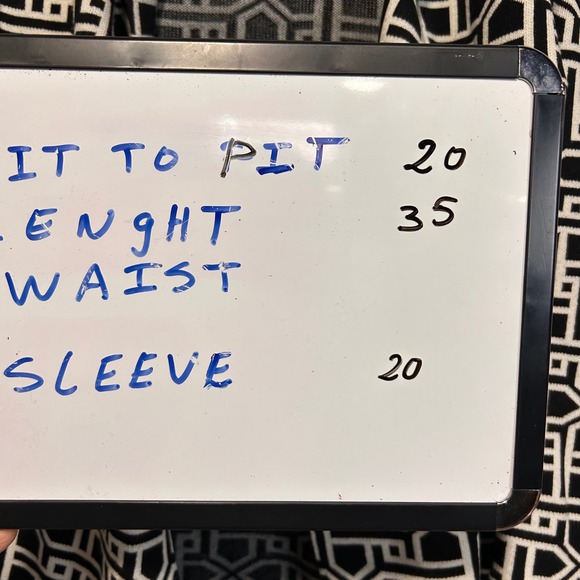 IT TO PIT 20
ENgHT 35
WAIST
SLEEVE 20